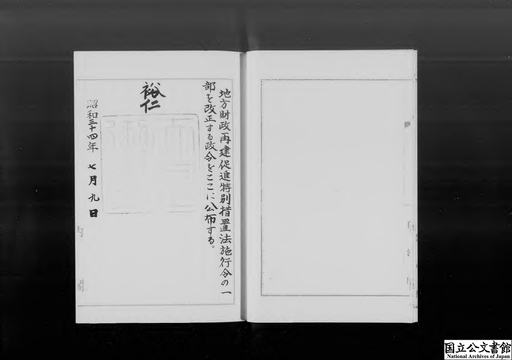 地方財政再建促進特別措置法施行令の一
部を改正する政令をここに公布する。
裕仁
昭和三十四年七月九日
国立公文書館
National Archives of Japan